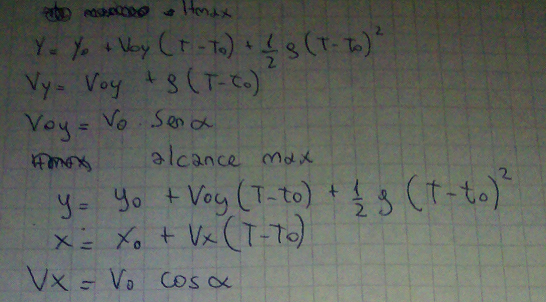 Hmax
Y = Y₀ + Voy (T - T₀) + 1/2 g (T - T₀)²
Vy = Voy + g (T - t₀)
Voy = V₀ . Sen α
alcance max
y = y₀ + Voy (T - t₀) + 1/2 g (T - t₀)²
x = x₀ + Vx (T - T₀)
Vx = V₀ cos α